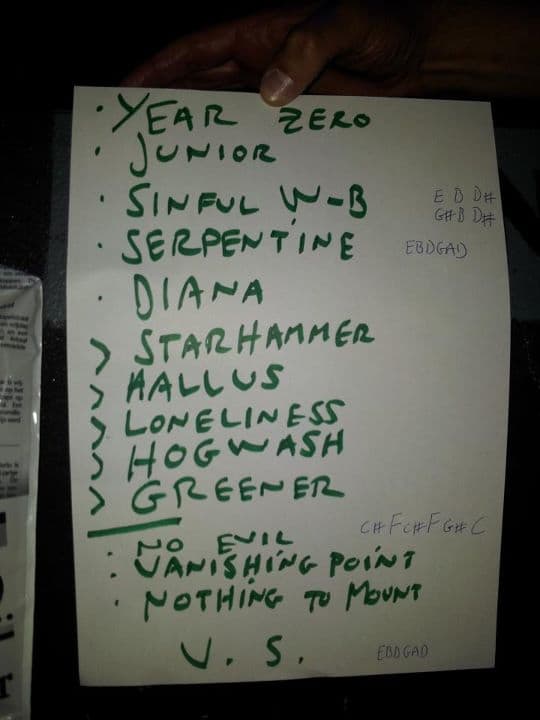 · YEAR ZERO
· JUNIOR
· SINFUL W-B
E B D#
G#B D#
· SERPENTINE
EBDGAD
· DIANA
> STARHAMMER
> HALLUS
> LONELINESS
> HOGWASH
> GREENER
C#FC#FG#C
· NO EVIL
· VANISHING POINT
· NOTHING TO MOUNT
V. S.
EBDGAD